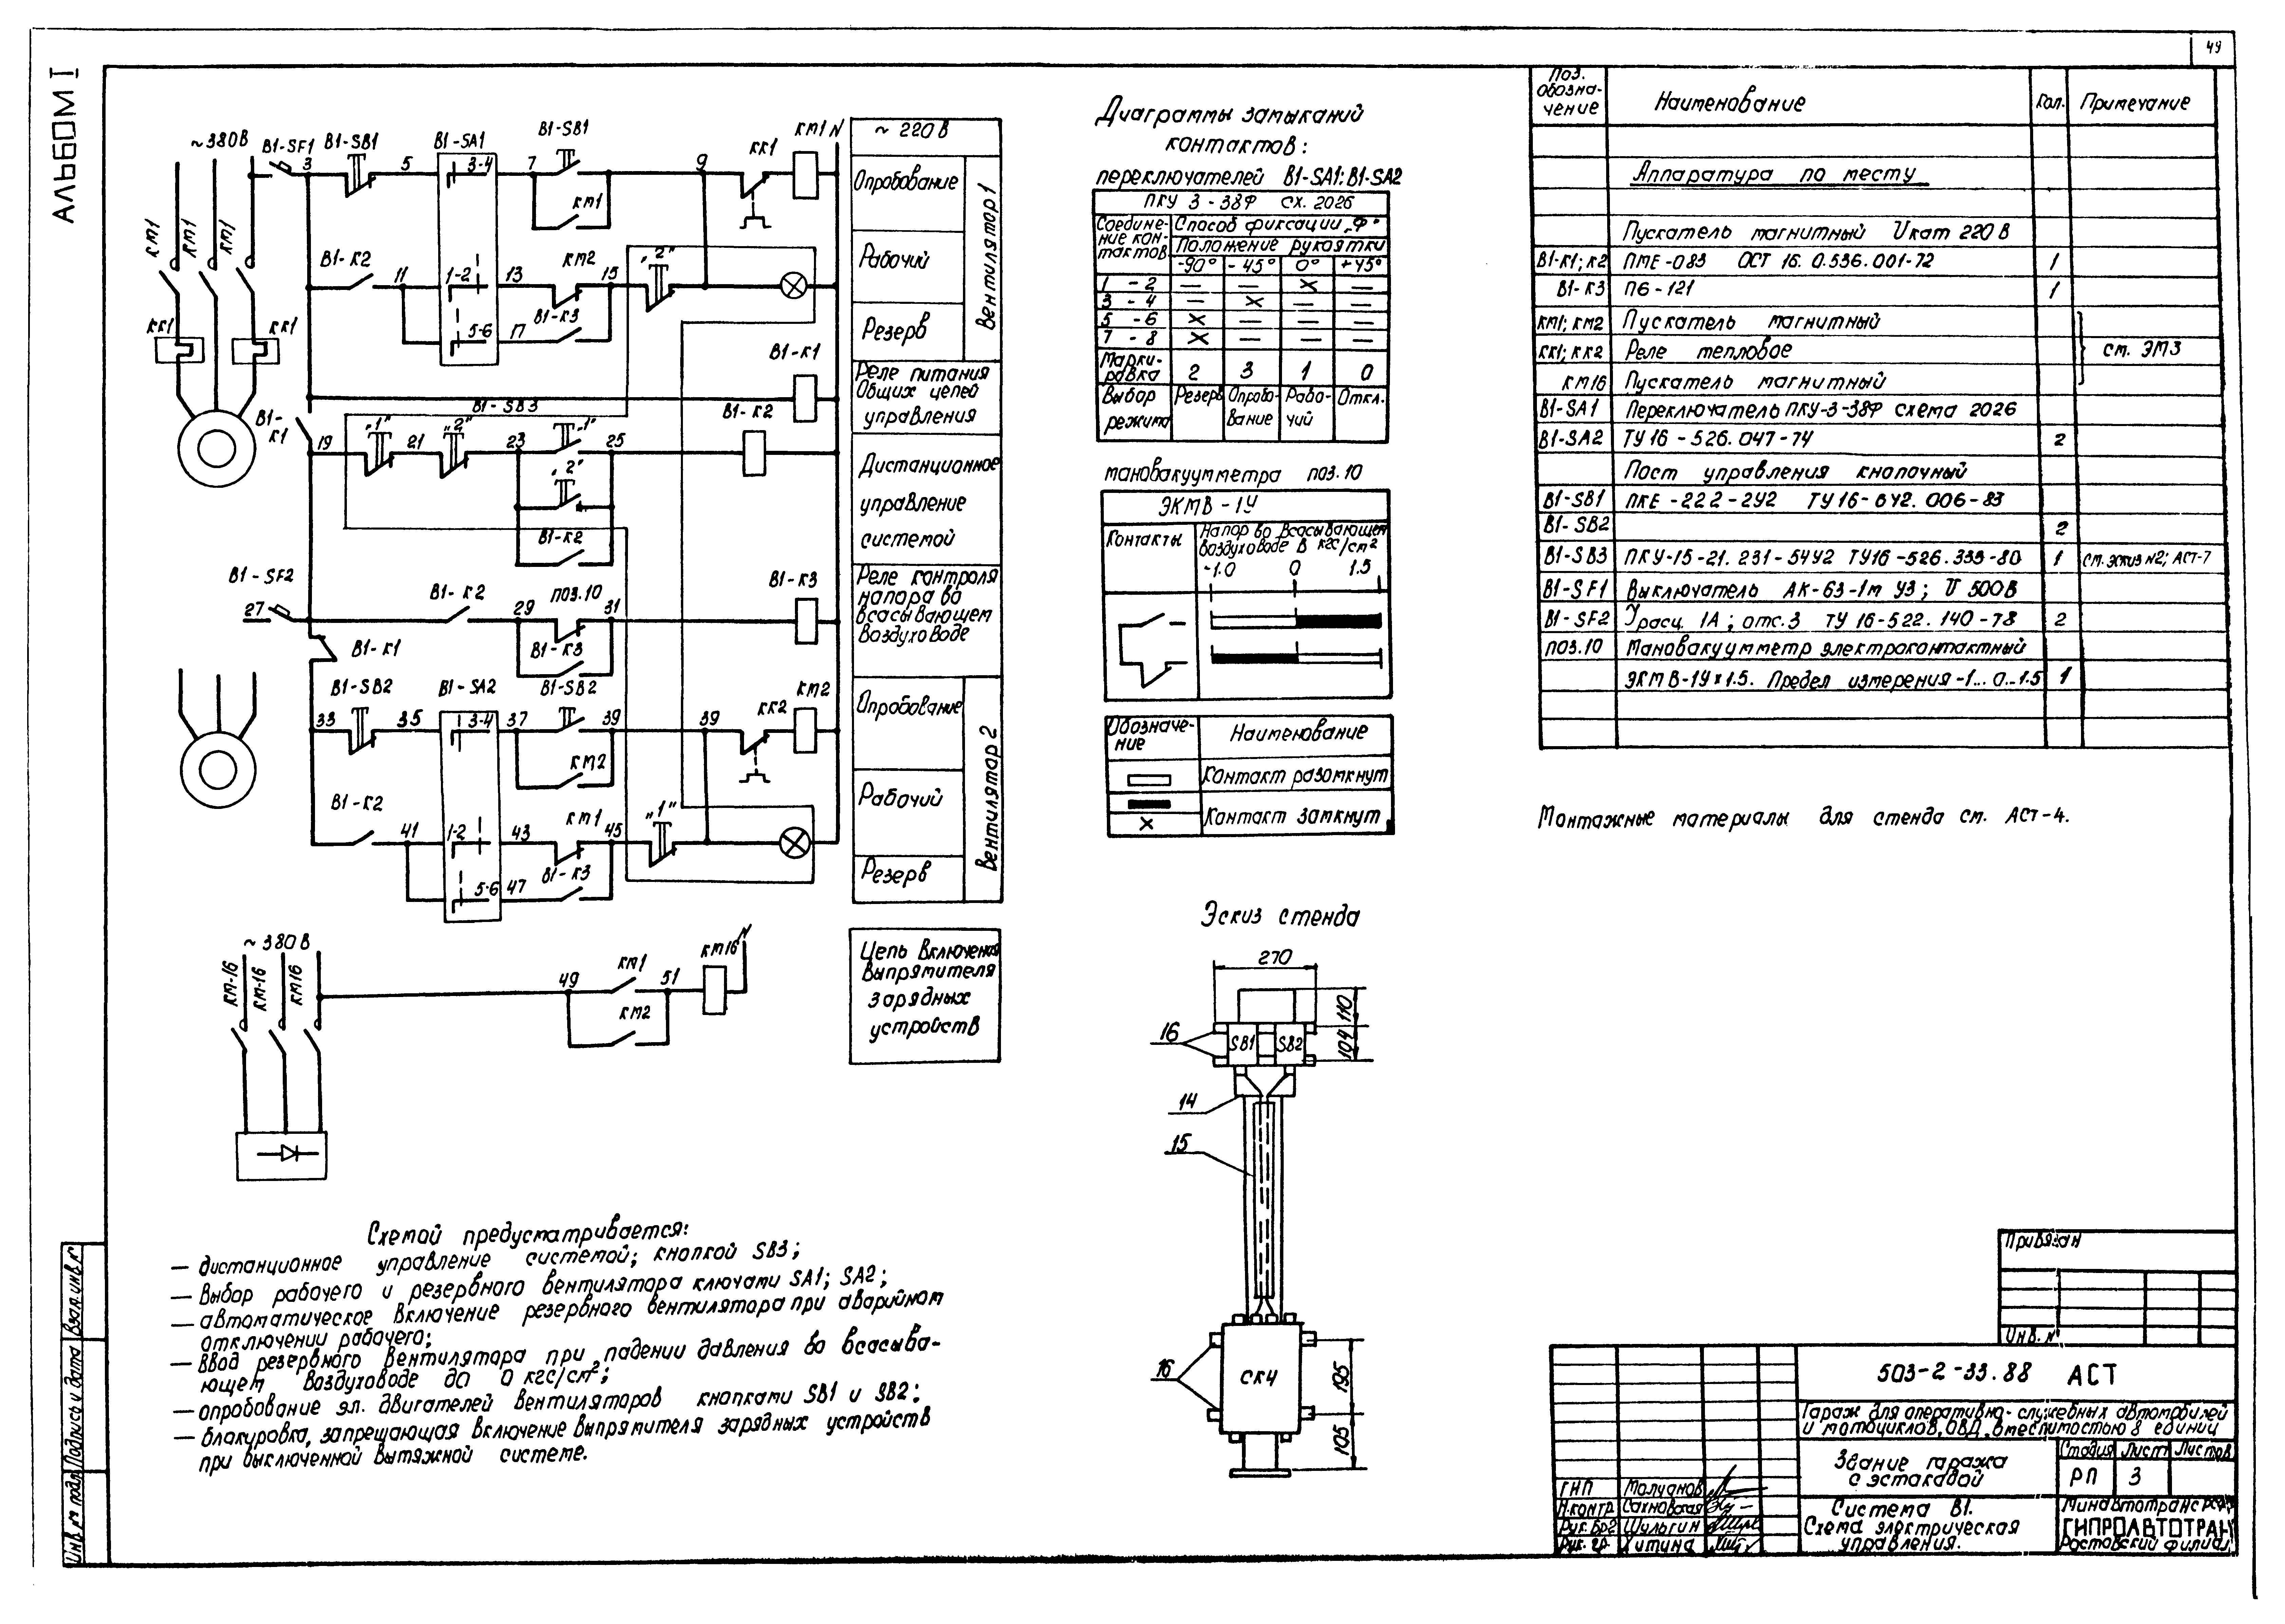 49
АЛЬБОМ I
~380В
В1-SF1
3
В1-SB1
5
В1-SA1
3-4
7
В1-SB1
9
КК1
КМ1
N
КМ1
КМ1
КМ1
КМ1
В1-К2
11
1-2
13
КМ2
15
„2"
КК1
КК1
5-6
17
В1-К3
В1-К1
В1-К1
В1-SB3
В1-К2
19
„1"
21
„2"
23
„1"
25
„2"
В1-К2
В1-SF2
27
В1-К2
29
ПОЗ.10
31
В1-К3
В1-К3
В1-К1
В1-SB2
В1-SA2
В1-SB2
КМ2
33
35
3-4
37
39
39
КК2
КМ2
В1-К2
41
1-2
43
КМ1
45
„1"
5-6
47
В1-К3
~380В
КМ-16
КМ-16
КМ16
49
КМ1
51
КМ16
N
КМ2
~ 220 В
Опробование
Рабочий
Резерв
Вентилятор 1
Реле питания
Общих цепей
управления
Дистанционное
управление
системой
Реле контроля
напора во
всасывающем
воздуховоде
Опробование
Рабочий
Резерв
Вентилятор 2
Цепь включения
выпрямителя
зарядных
устройств
Схемой предусматривается:
— дистанционное управление системой; кнопкой SB3;
— выбор рабочего и резервного вентилятора ключами SA1; SA2;
— автоматическое включение резервного вентилятора при аварийном
отключении рабочего;
— ввод резервного вентилятора при падении давления во всасыва-
ющем воздуховоде до 0 кгс/см²;
— опробование эл. двигателей вентиляторов кнопками SB1 и SB2;
— блокировка, запрещающая включение выпрямителя зарядных устройств
при выключенной вытяжной системе.
Диаграммы замыканий
контактов:
переключателей В1-SA1; В1-SA2
ПКУ 3-38Ф СХ. 2026
Соедине-
ние кон-
тактов
Способ фиксации „Ф"
Положение рукоятки
-90° -45° 0° +45°
1 - 2 — — X —
3 - 4 — X — —
5 - 6 X — — —
7 - 8 X — — —
Марки-
ровка 2 3 1 0
Выбор
режима
Резерв
Опробо-
вание
Рабо-
чий
Откл.
мановакуумметра поз.10
ЭКМВ-1У
Контакты
Напор во всасывающем
воздуховоде в кгс/см²
-1.0 0 1.5
Обозначе-
ние
Наименование
Контакт разомкнут
X
Контакт замкнут
Эскиз стенда
270
110
104
16
SB1
SB2
14
15
16
СК4
195
105
Поз.
обозна-
чение
Наименование
Кол.
Примечание
Аппаратура по месту
Пускатель магнитный Uкат 220 В
В1-К1; К2 ПМЕ-083 ОСТ 16.0.536.001-72 1
В1-К3 П6-121 1
КМ1; КМ2 Пускатель магнитный
КК1; КК2 Реле тепловое см. ЭМ3
КМ16 Пускатель магнитный
В1-SA1 Переключатель ПКУ-3-38Ф схема 2026
В1-SA2 ТУ16-526.047-74 2
Пост управления кнопочный
В1-SB1 ПКЕ-222-2У2 ТУ16-642.006-83
В1-SB2 2
В1-SB3 ПКУ-15-21.231-54У2 ТУ16-526.333-80 1 см. эскиз N2; АСТ-7
В1-SF1 Выключатель АК-63-1м У3; U 500В
В1-SF2 Iрасц. 1А; отс.3 ТУ 16-522.140-78 2
поз.10 Мановакуумметр электроконтактный
ЭКМВ-1У×1.5. Предел измерения -1...0...1.5 1
Монтажные материалы для стенда см. АСТ-4.
Привязан
Инв. N
503-2-33.88 АСТ
Гараж для оперативно-служебных автомобилей
и мотоциклов, ОВД, вместимостью 8 единиц
Здание гаража
с эстакадой
Стадия Лист Листов
РП 3
Система В1.
Схема электрическая
управления.
Минавтотранс РСФСР
ГИПРОАВТОТРАНС
Ростовский филиал
ГИП Молчанов
Н.контр. Сахновская
Рук. бр. Шульгин
Рук. гр. Хитина
Взам инв N
Подпись и дата
Инв N подл